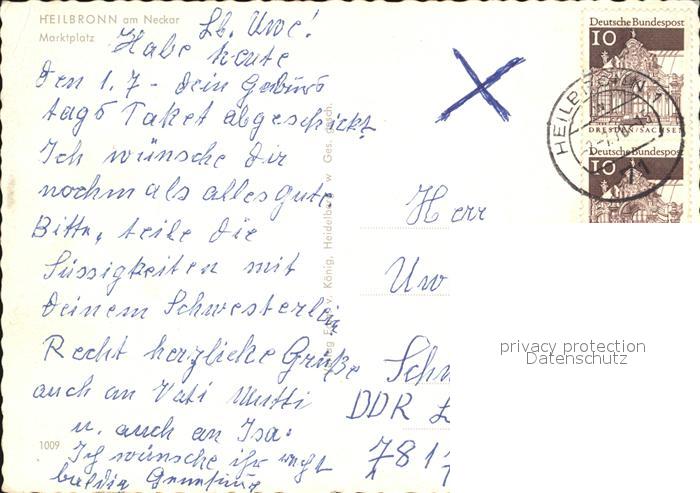 HEILBRONN am Neckar
Marktplatz
Lb. Uwe!
Habe heute
den 1.7- dein Geburts
tags Paket abgeschickt
Ich wünsche dir
nochmals alles gute
Bitte, teile die
Süssigkeiten mit
deinem Schwesterlein
Recht herzliche Grüße
auch an Vati Mutti
u. auch an Isa.
Ich wünsche ihr recht
baldige
1009
Verlag Edm. v. König, Heidelberg w Ges. gesch.
Deutsche Bundespost
10
DRESDEN/SACHSEN
Deutsche Bundespost
10
HEILBRONN 1
71
Herr
Uw
Sch
DDR
781
privacy protection
Datenschutz